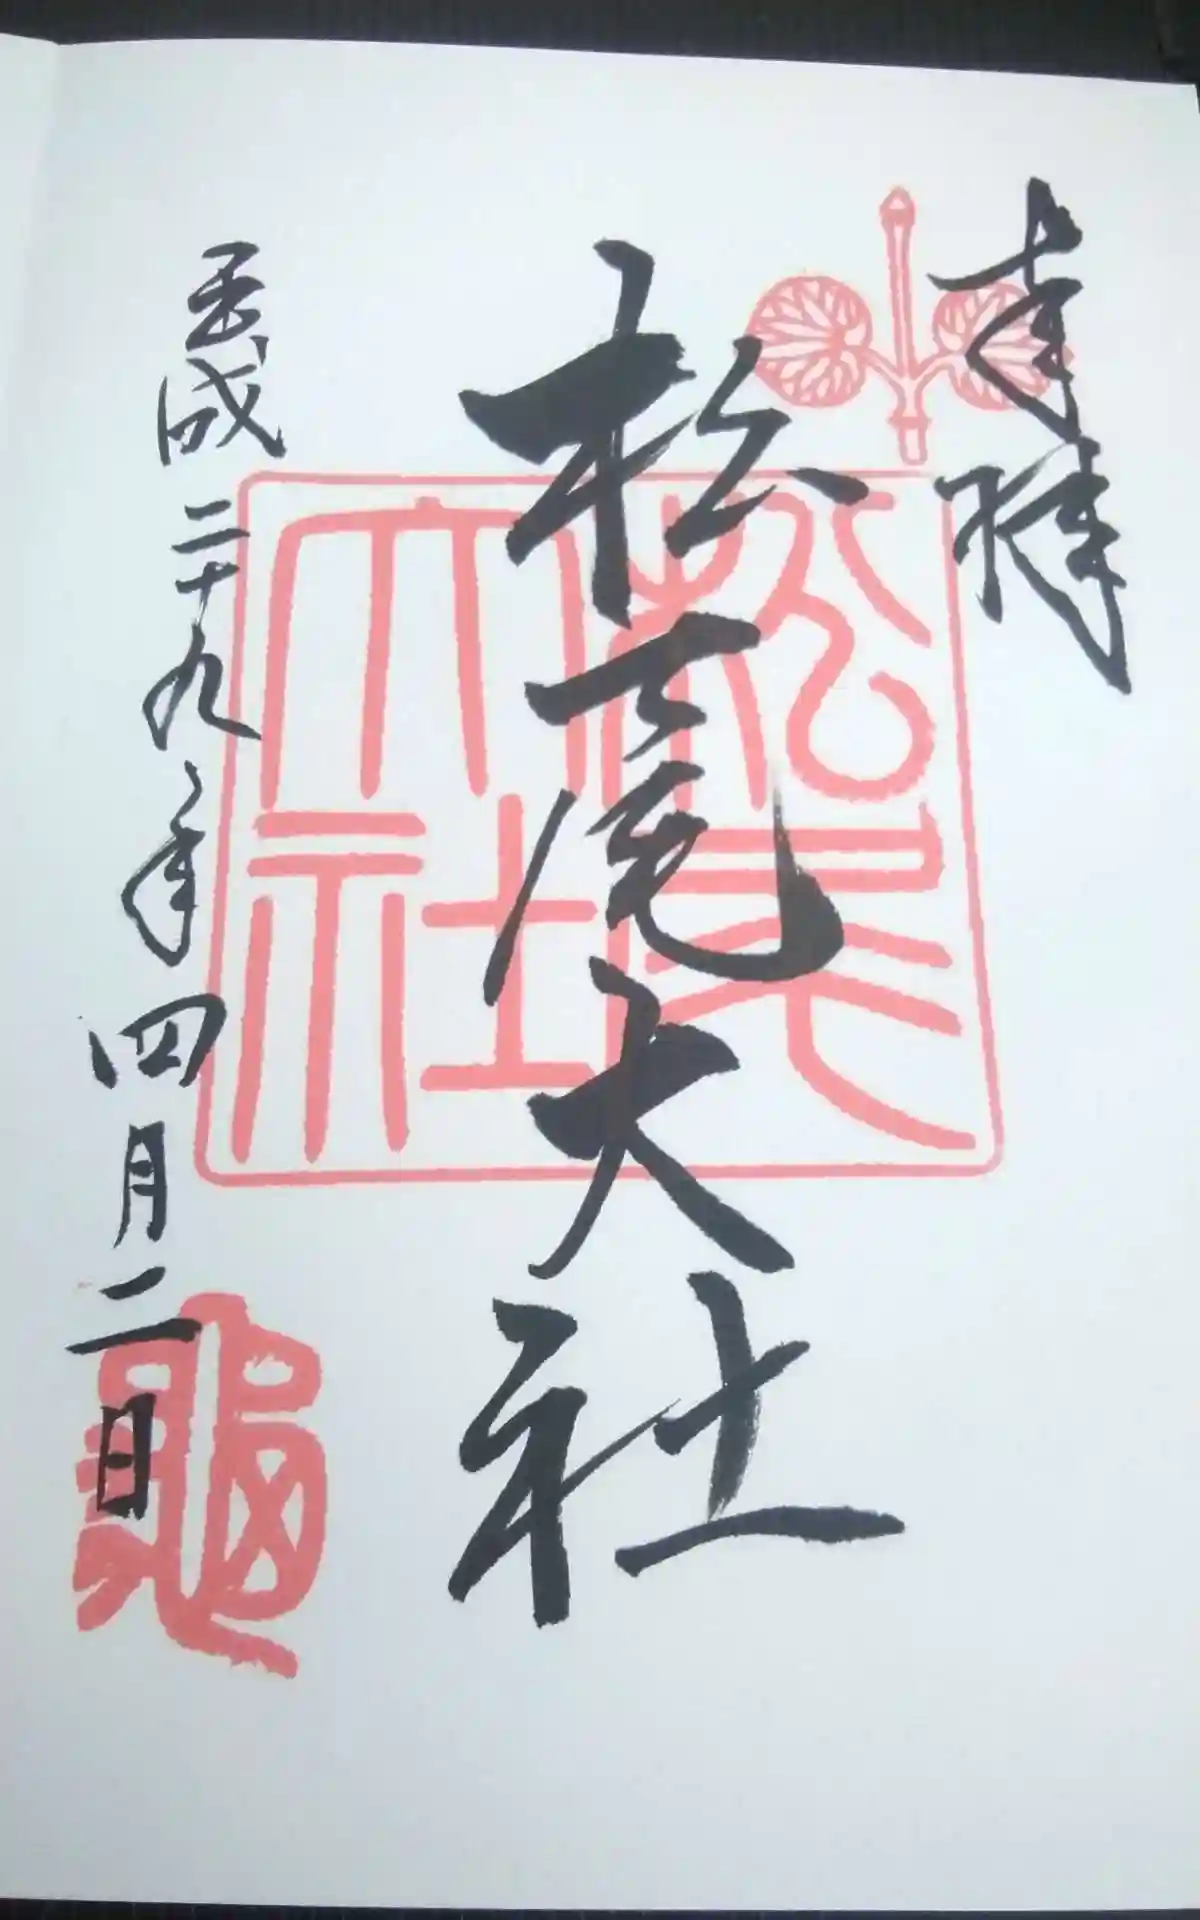 奉拝
松尾大社
平成二十九年四月二日
松尾大社
亀